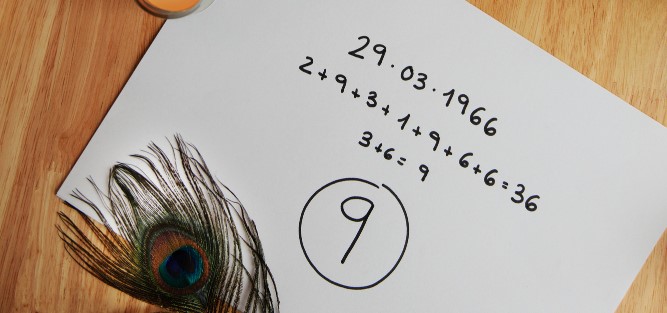 29.03.1966
2+9+3+1+9+6+6=36
3+6=9
9